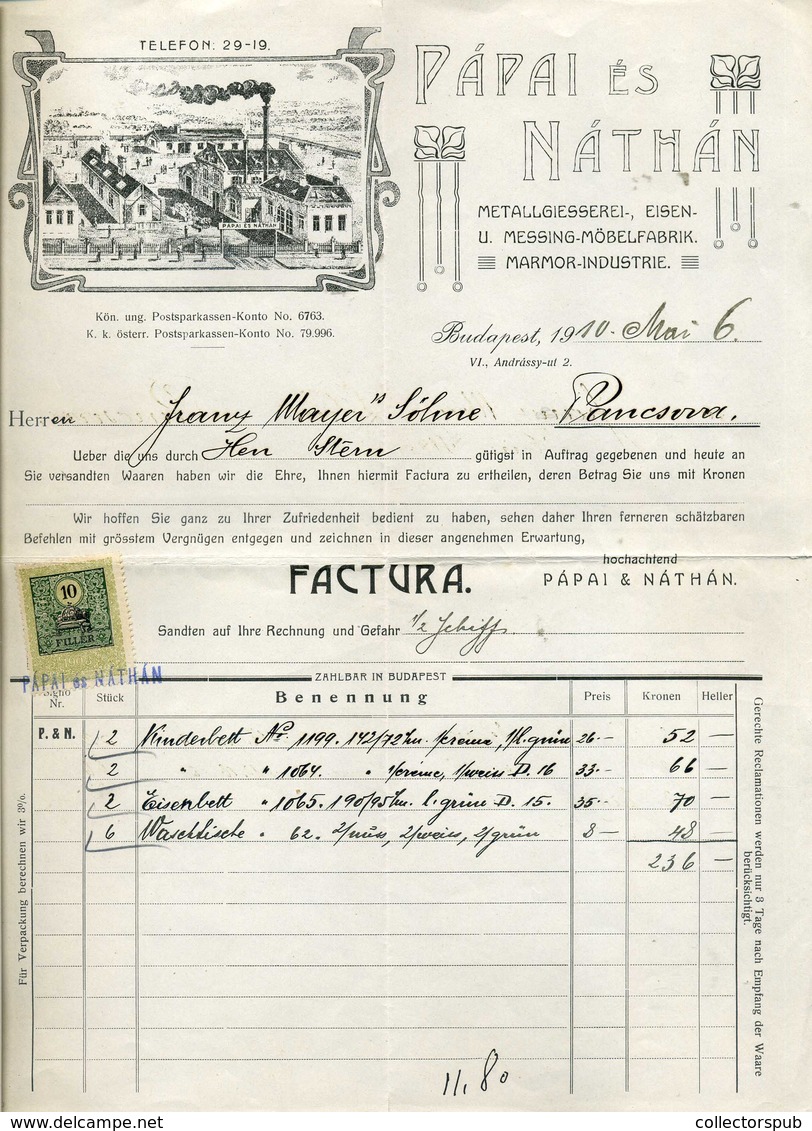 TELEFON: 29-19.
PÁPAI ÉS NÁTHÁN
PÁPAI ÉS
NÁTHÁN
METALLGIESSEREI-, EISEN-
U. MESSING-MÖBELFABRIK.
MARMOR-INDUSTRIE.
Kön. ung. Postsparkassen-Konto No. 6763.
K. k. österr. Postsparkassen-Konto No. 79.996.
Budapest, 1910. Mai 6.
VI., Andrássy-ut 2.
Herren Franz Mayer's Söhne Pancsova.
Ueber die uns durch Hen Stern gütigst in Auftrag gegebenen und heute an
Sie versandten Waaren haben wir die Ehre, Ihnen hiermit Factura zu ertheilen, deren Betrag Sie uns mit Kronen
Wir hoffen Sie ganz zu Ihrer Zufriedenheit bedient zu haben, sehen daher Ihren ferneren schätzbaren
Befehlen mit grösstem Vergnügen entgegen und zeichnen in dieser angenehmen Erwartung,
hochachtend
FACTURA. PÁPAI & NÁTHÁN.
10
FILLÉR
Sandten auf Ihre Rechnung und Gefahr 1/2 Schiff
PÁPAI és NÁTHÁN
ZAHLBAR IN BUDAPEST
Signo Nr. Stück Benennung Preis Kronen Heller
P. & N. 2 Kinderbett No. 1199. 142/72 1/crème, 1/l. grün 26.- 52 —
2 " " 1064. " 1/crème, 1/weiss D. 16 33.- 66 —
2 Eisenbett " 1065. 190/95 l. grün D. 15. 35.- 70 —
6 Waschtische " 62. 2/nuss, 2/weiss, 2/grün 8 — 48 —
236 —
11.80
Für Verpackung berechnen wir 3%.
Gerechte Reclamationen werden nur 8 Tage nach Empfang der Waare
berücksichtigt.
delcampe.net
collectorspub